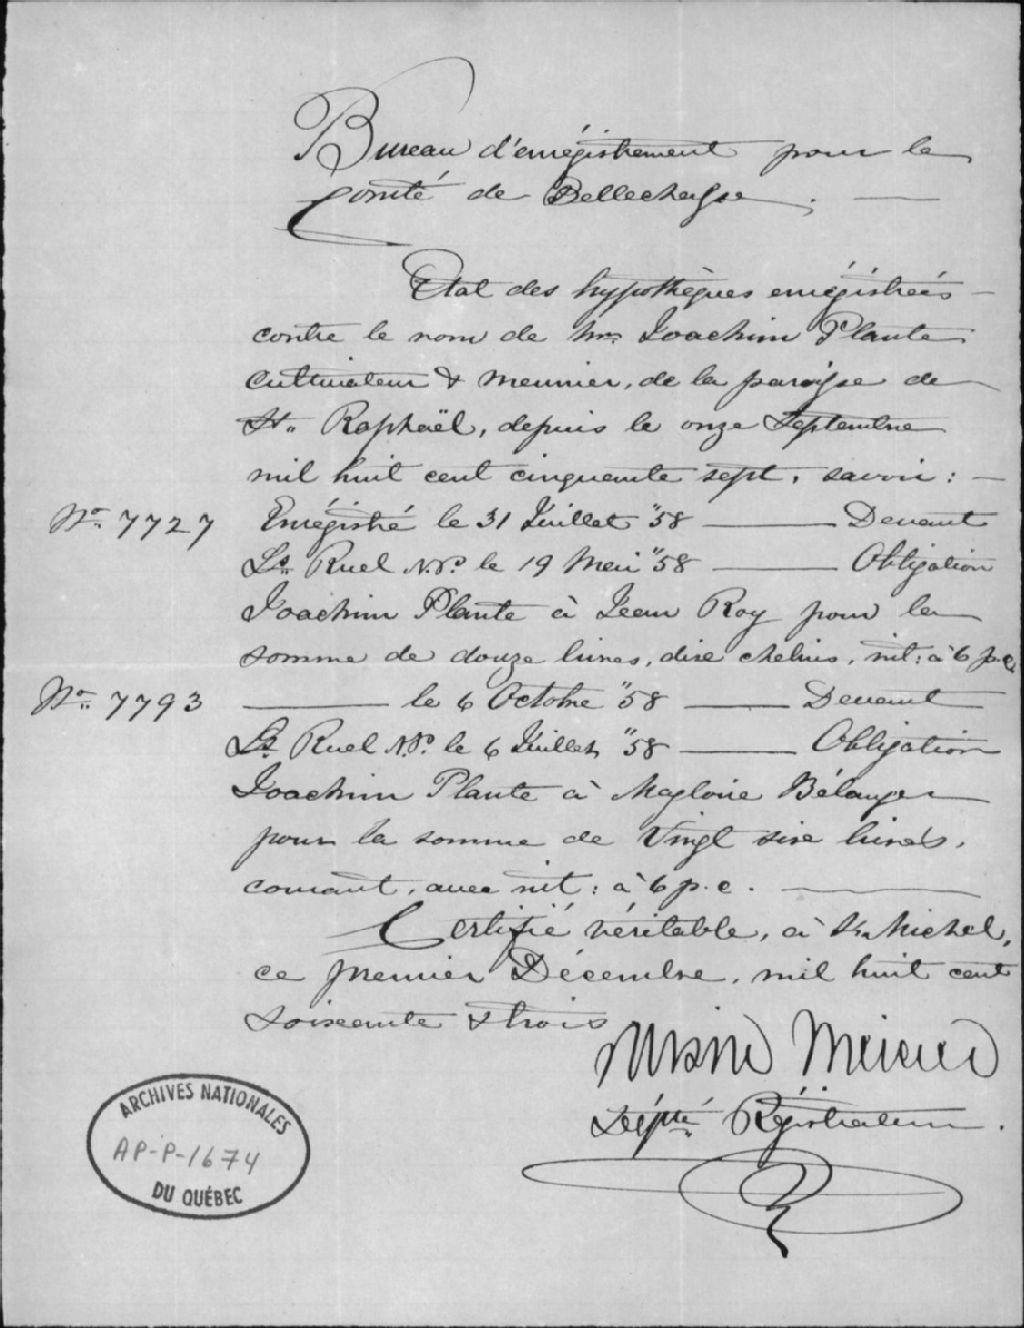 Bureau d'enrégistrement pour le
Comté de Bellechasse.
Etat des hypothèques enrégistrées
contre le nom de Joachim Plante
Cultivateur & meunier, de la paroisse de
St. Raphaël, depuis le onze Septembre
mil huit cent cinquante sept, savoir :
No. 7727 Enrégistré le 31 Juillet "58 Devant
Ls. Ruel N.P. le 19 Mai "58 Obligation
Joachim Plante à Jean Roy pour la
somme de douze livres, dix chelins, int: à 6 p.c.
No. 7793 le 6 Octobre "58 Devant
Ls. Ruel N.P. le 6 Juillet "58 Obligation
Joachim Plante à Magloire Bélanger
pour la somme de Vingt six livres,
courant, avec int: à 6 p.c.
Certifié véritable, à St. Michel,
ce premier Décembre, mil huit cent
soixante & trois
Député Régistrateur.
ARCHIVES NATIONALES
AP-P-1674
DU QUÉBEC